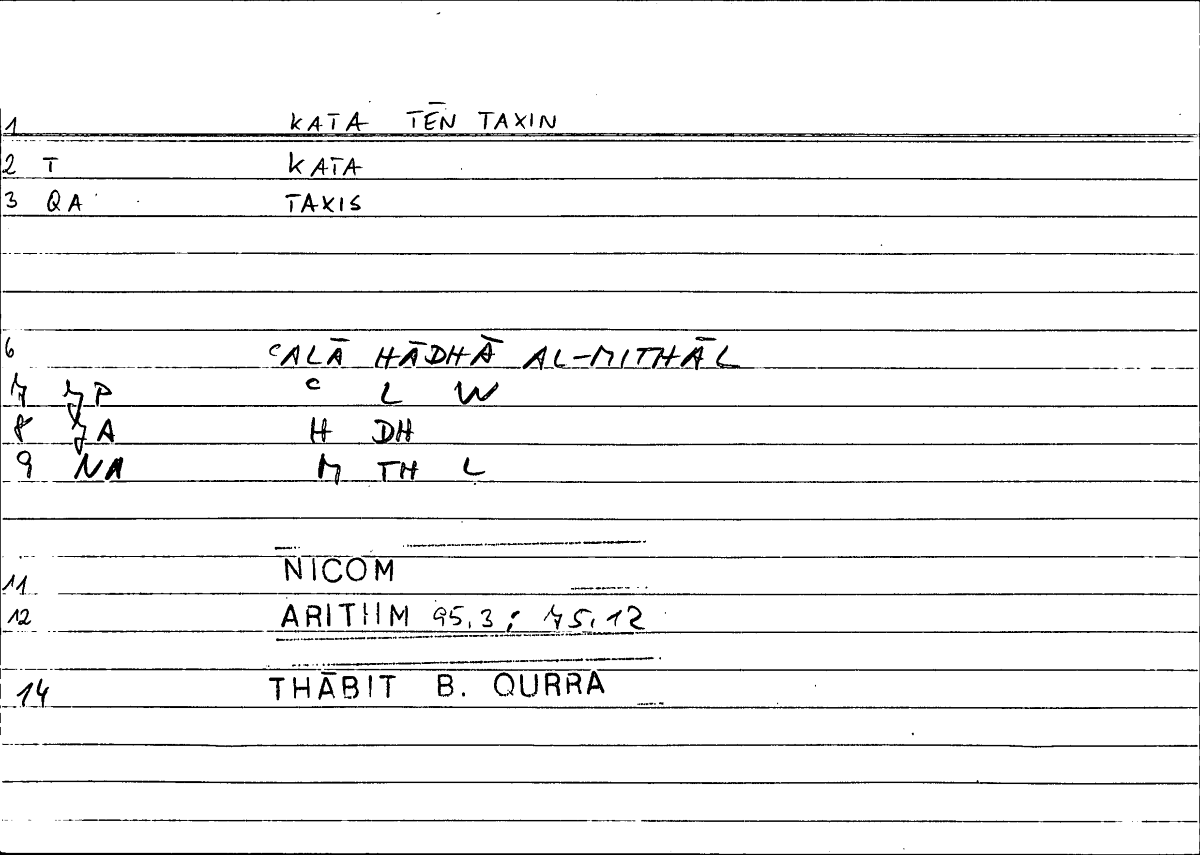 1 KATA TĒN TAXIN
2 T KATA
3 QA TAXIS
6 ʿALĀ HĀDHĀ AL-MITHĀL
7 JP ʿ L W
8 JA H DH
9 NA M TH L
11 NICOM
12 ARITHM 95,3; 75,12
14 THĀBIT B. QURRA